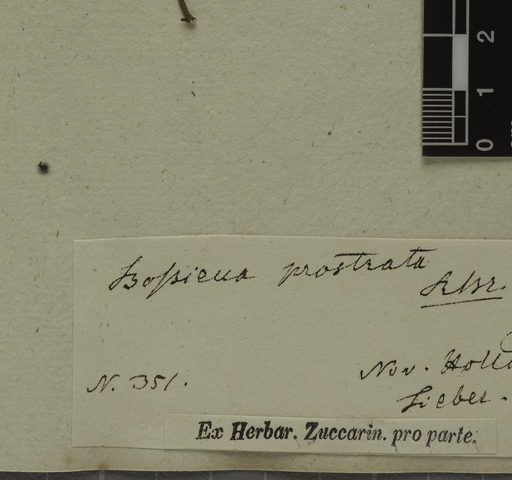 Boßieua prostrata
RBr.
Nov. Holl
N. 351.
Sieber.
Ex Herbar. Zuccarin. pro parte.
2
1
0